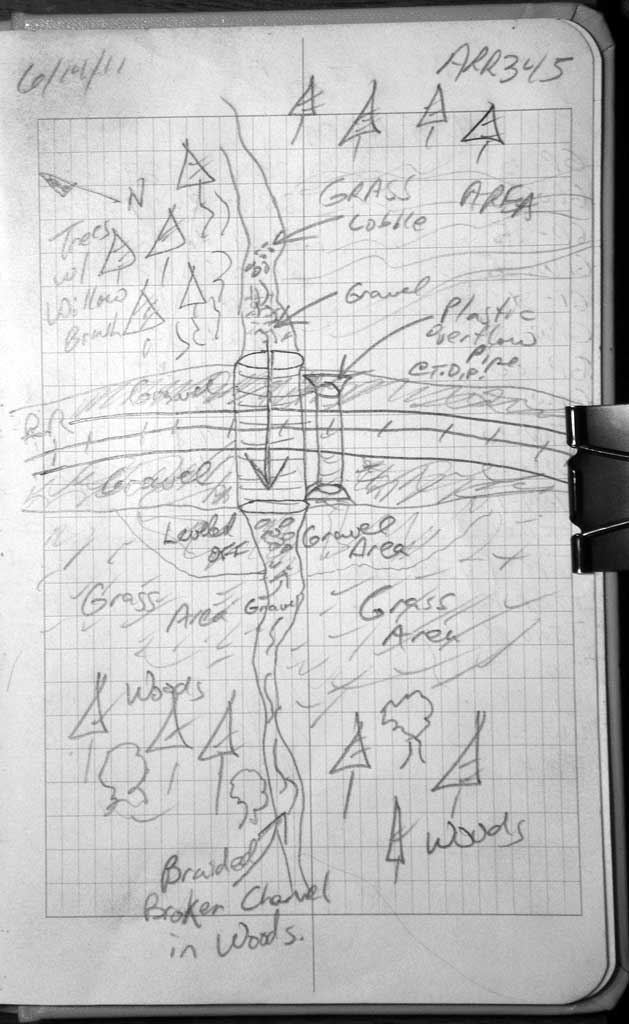 6/14/11
ARR345
N
GRASS AREA
Cobble
Trees
w/
Willow
Brush
Gravel
Plastic
overflow
Pipe
@ T.O.P.
Gravel
R.R.
Gravel
Leveled
OFF
Gravel
Area
Grass
Area
Gravel
Grass
Area
Woods
Woods
Braided
Broken Channel
in Woods.